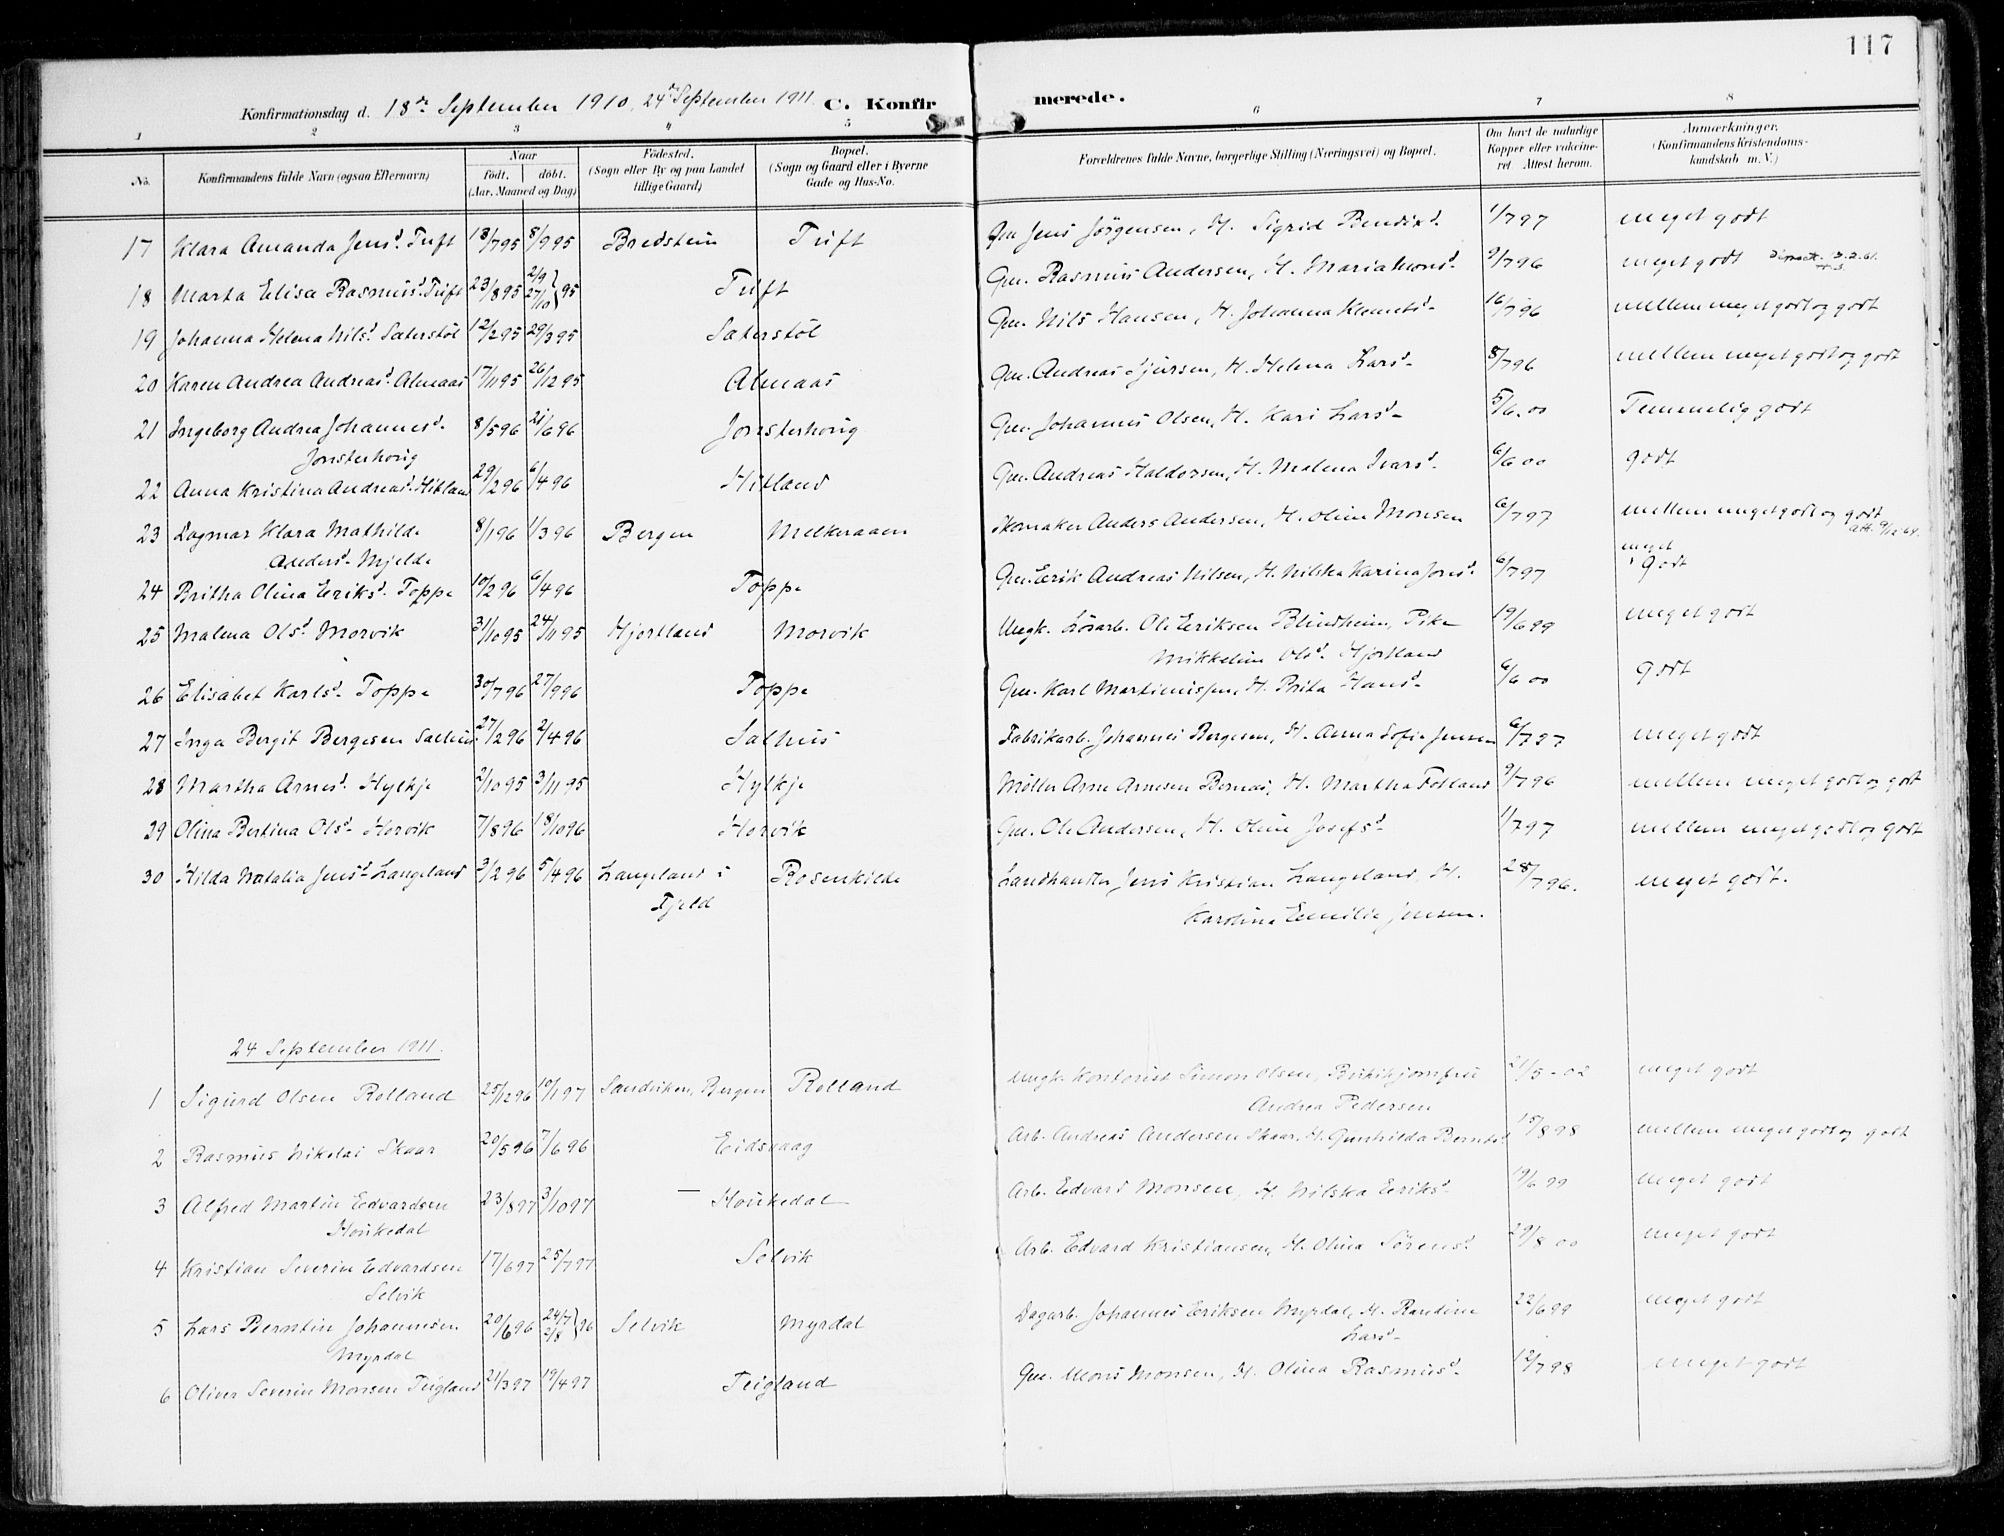 117
Konfirmationsdag d. 18de September 1910. 24de September 1911. C. Konfirmerede.
1 2 3 4 5 6 7 8
No. Konfirmandens fulde Navn (ogsaa Efternavn) Naar født. døbt. (Aar, Maaned og Dag) Fødested. (Sogn eller By og paa Landet tillige Gaard) Bopæl. (Sogn og Gaard eller i Byerne Gade og Hus-No. Forældrenes fulde Navne, borgerlige Stilling (Næringsvei) og Bopæl. Om havt de naturlige Kopper eller vakcineret. Attest herom. Anmærkninger. (Konfirmandens Kristendomskundskab m. V.)
17 Klara Amanda Jensd. Tuft 18/7 95 8/9 95 Bredstein Tuft Gm Jens Jörgensen, H. Sigrid Bendixd. 1/7 97 meget godt
18 Marta Elisa Rasmusd. Tuft 23/8 95 2/9 27/10 } 95 Tuft Gm. Rasmus Andersen, H. Maria Monsd. 9/7 96 meget godt
19 Johanna Helena Nilsd. Sæterstöl 12/2 95 29/3 95 Sæterstöl Gm. Nils Hansen, H. Johanna Klemetsd. 16/7 96 mellem meget godt og godt
20 Karen Andrea Andreasd. Almaas 17/11 95 26/12 95 Almaas Gm. Andreas Sjursen, H. Helena Larsd. 8/7 96 mellem meget godt og godt
21 Ingeborg Andrea Johannesd. 8/5 96 21/6 96 Jonsterhovig Gm. Johannes Olsen, H. Kari Larsd. 5/6 00 Temmelig godt
Jonsterhovig
22 Anna Kristina Andreasd. Hitland 29/2 96 6/4 96 Hitland Gm. Andreas Haldorsen, H. Malena Ivarsd. 6/6 00 godt
23 Dagmar Klara Mathilde 8/1 96 1/3 96 Bergen Melkeraaen Skomaker Anders Andersen, H. Oline Monsen 6/7 97 mellem meget godt og godt
Andersd. Mjelde att. 9/12 64.
24 Britha Olina Eriksd. Toppe 10/2 96 6/4 96 Toppe Gm. Erik Andreas Nilsen, H. Nilska Karina Jonsd. 6/7 97 meget godt
25 Malena Olsd. Morvik 31/10 95 24/11 95 Hjortland Morvik Ungk. Lösarb. Ole Eriksen Blindheim, Pike 19/6 99 meget godt
Mikkeline Olsd. Hjortland
26 Elisabet Karlsd. Toppe 30/7 96 27/9 96 Toppe Gm. Karl Martinussen, H. Brita Hansd. 6/6 00 godt
27 Inga Bergit Bergesen Salhus 27/2 96 2/4 96 Salhus Fabrikarb. Johannes Bergesen, H. Anna Sofie Jensen 6/7 97 meget godt
28 Martha Arnesd. Hylkje 2/10 95 3/11 95 Hylkje Möller Arne Arnesen Bernæs, H. Martha Fotland 9/7 96 mellem meget godt og godt
29 Olina Bertina Olsd. Horvik 7/8 96 18/10 96 Horvik Gm. Ole Andersen, H. Oline Josefsd. 1/7 97 mellem meget godt og godt
30 Hilda Natalia Jensd. Langeland 3/2 96 5/4 96 Langeland i Rosenkilde Landhandler Jens Kristian Langeland, H. 28/7 96. meget godt.
Fjeld Karolina Emilie Jensen.
24 September 1911.
1 Sigurd Olsen Rolland 25/12 96 10/1 97 Sandviken, Bergen Rolland Ungk. Kontorist Simon Olsen, Butikjomfru 21/5 - 02 meget godt
Andrea Pedersen
2 Rasmus Nikolai Skaar 20/5 96 7/6 96 Eidsvaag Arb. Andreas Andersen Skaar, H. Gunhilda Berntsd. 15/8 98 mellem meget godt og godt
3 Alfred Martin Edvardsen 23/8 97 3/10 97 — Houkedal Arb. Edvard Monsen, H. Nilska Eriksd. 19/6 99 meget godt
Houkedal
4 Kristian Severin Edvardsen 17/6 97 25/7 97 Selvik Arb. Edvard Kristiansen, H. Olina Sörensd. 29/8 00 meget godt
Selvik
5 Lars Berntin Johannesen 20/6 96 24/7 2/8 } 96 Selvik Myrdal Dagarb. Johannes Eriksen Myrdal, H. Randine 22/6 99 meget godt
Myrdal Larsd.
6 Oliver Severin Monsen Teigland 21/3 97 19/4 97 Teigland Gm. Mons Monsen, H. Olina Rasmusd. 12/7 98 meget godt